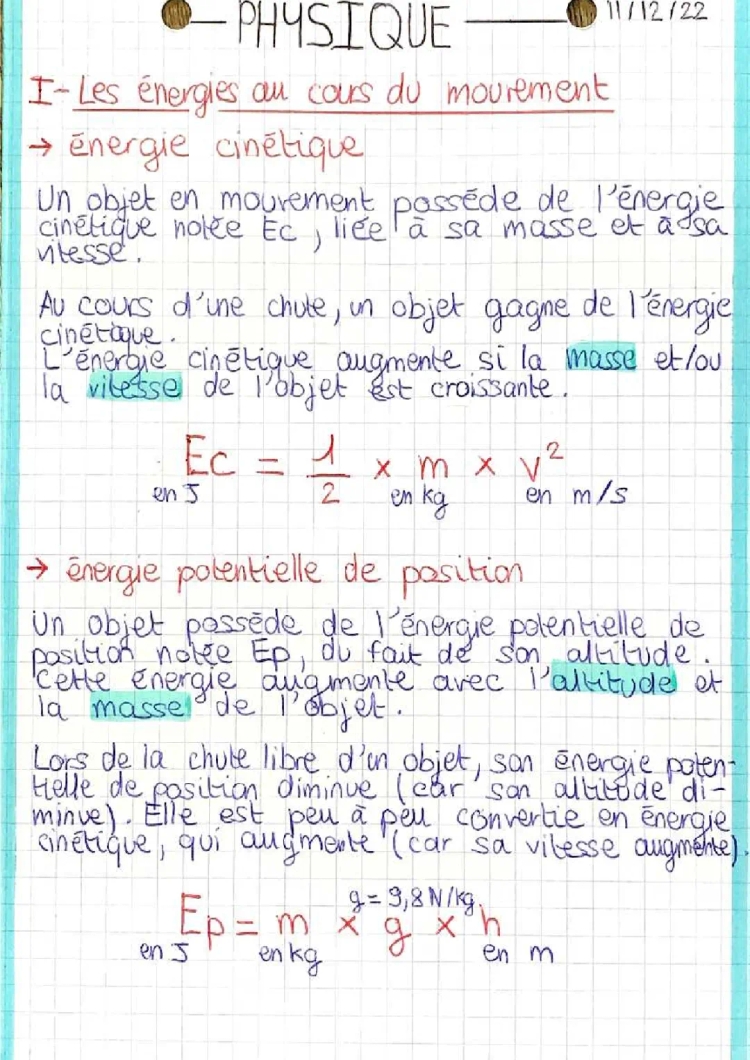 PHYSIQUE
11/12/22
I-Les énergies au cours du mouvement
→ énergie cinétique
Un objet en mouvement possède de l'énergie
cinétique notée Ec, liée à sa masse et à sa
vitesse.
Au cours d'une chute, un objet gagne de l'énergie
cinétique.
L'énergie cinétique augmente si la masse et/ou
la vitesse de l'objet est croissante.
Ec = 1/2 x m x v²
en J en kg en m/s
→ énergie potentielle de position
Un objet possède de l'énergie potentielle de
position notée Ep, du fait de son altitude.
Cette énergie augmente avec l'altitude et
la masse de l'objet.
Lors de la chute libre d'un objet, son énergie poten-
tielle de position diminue (car son altitude di-
minue). Elle est peu à peu convertie en énergie
cinétique, qui augmente (car sa vitesse augmente).
g = 9,8 N/kg.
Ep = m x g x h
en J en kg en m